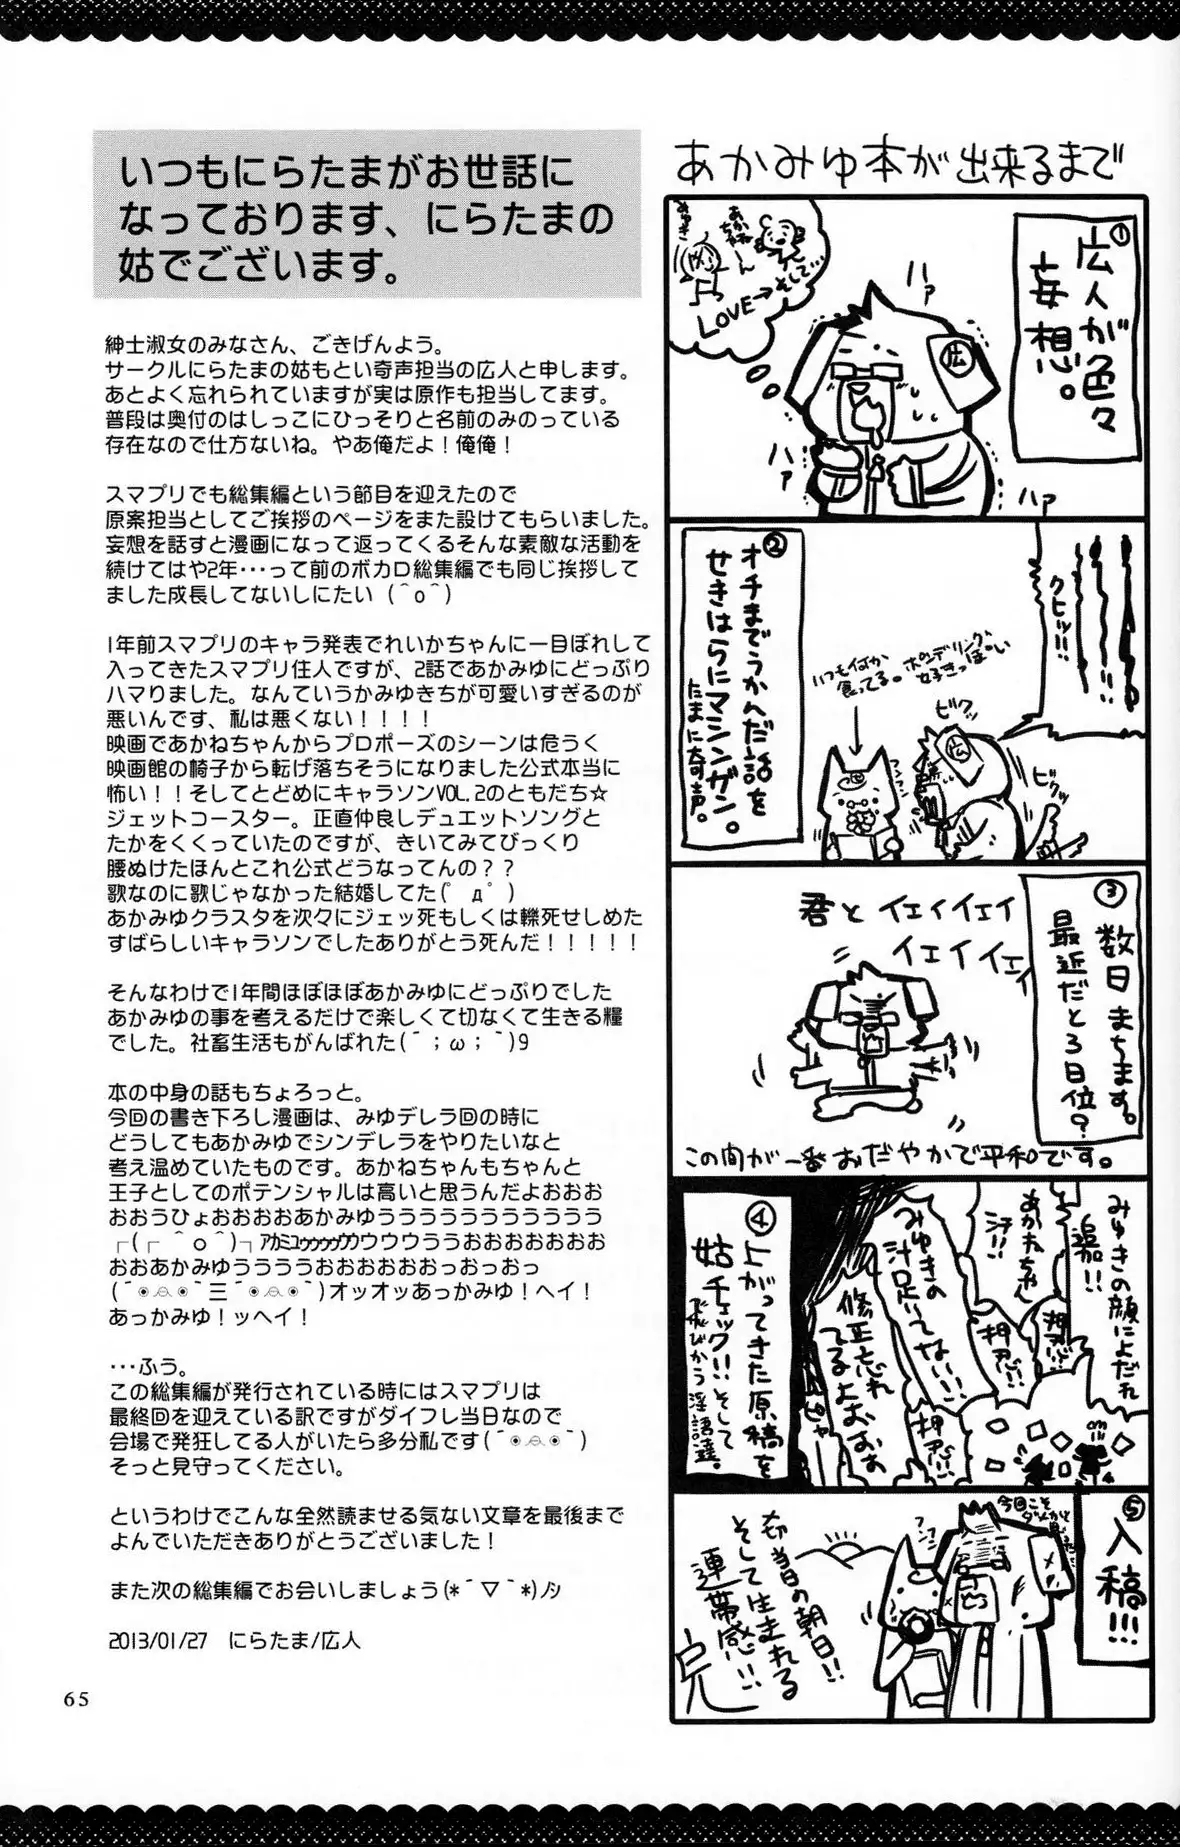 いつもにらたまがお世話に
なっております、にらたまの
姑でございます。
紳士淑女のみなさん、ごきげんよう。
サークルにらたまの姑もとい奇声担当の広人と申します。
あとよく忘れられていますが実は原作も担当してます。
普段は奥付のはしっこにひっそりと名前のみのっている
存在なので仕方ないね。やあ俺だよ！俺俺！
スマプリでも総集編という節目を迎えたので
原案担当としてご挨拶のページをまた設けてもらいました。
妄想を話すと漫画になって返ってくるそんな素敵な活動を
続けてはや2年･･･って前のボカロ総集編でも同じ挨拶して
ました成長してないしにたい（＾o＾）
1年前スマプリのキャラ発表でれいかちゃんに一目ぼれして
入ってきたスマプリ住人ですが、2話であかみゆにどっぷり
ハマりました。なんていうかみゆきちが可愛いすぎるのが
悪いんです、私は悪くない！！！！
映画であかねちゃんからプロポーズのシーンは危うく
映画館の椅子から転げ落ちそうになりました公式本当に
怖い！！そしてとどめにキャラソンVOL.2のともだち☆
ジェットコースター。正直仲良しデュエットソングと
たかをくくっていたのですが、きいてみてびっくり
腰ぬけたほんとこれ公式どうなってんの？？
歌なのに歌じゃなかった結婚してた(ﾟдﾟ)
あかみゆクラスタを次々にジェッ死もしくは轢死せしめた
すばらしいキャラソンでしたありがとう死んだ！！！！！
そんなわけで1年間ほぼほぼあかみゆにどっぷりでした
あかみゆの事を考えるだけで楽しくて切なくて生きる糧
でした。社畜生活もがんばれた(´；ω；｀)9
本の中身の話もちょろっと。
今回の書き下ろし漫画は、みゆデレラ回の時に
どうしてもあかみゆでシンデレラをやりたいなと
考え温めていたものです。あかねちゃんもちゃんと
王子としてのポテンシャルは高いと思うんだよおおお
おおうひょおおおおあかみゆうううううううううううう
┌(┌ ＾o＾)┐ｱｶﾐﾕｩｩｩｩｩｳｳｳウウウウううおおおおおおお
おおあかみゆうううううおおおおおおおっおっおっ
(´◉◠◉｀三´◉◠◉｀)オッオッあっかみゆ！ヘイ！
あっかみゆ！ッヘイ！
･･･ふう。
この総集編が発行されている時にはスマプリは
最終回を迎えている訳ですがダイフレ当日なので
会場で発狂してる人がいたら多分私です(´◉◠◉｀)
そっと見守ってください。
というわけでこんな全然読ませる気ない文章を最後まで
よんでいただきありがとうございました！
また次の総集編でお会いしましょう(*´▽｀*)ﾉｼ
2013/01/27　にらたま/広人
65
あかみゆ本が出来るまで
①
広人が色々
妄想。
みゆき
あかねちゃーん
LOVE→そして…
ハァ
広
ハァ
ハァ
②
オチまでうかんだ話を
せきはらにマシンガン。
たまに奇声。
いつも何か
食ってる。ポンデリング
好きっぽい
クヒッ!!
ビクッ
ビクッ
フンフン
広
③
数日まちます。
最近だと3日位？
君とイェイイェイ
イェイイェイ
この間が一番おだやかで平和です。
④
上がってきた原稿を
姑チェック!!そして
飛びかう淫語達。
みゆきの顔によだれ
追加!!
あかねちゃん
みゆきの
汁足りてない!!
修正忘れ
てるよおおお
押忍!!
押忍!!
押忍!!
⑤
入稿!!!
今回こそ
フンフン
当日の朝日!!
そして生まれる
連帯感!!
完